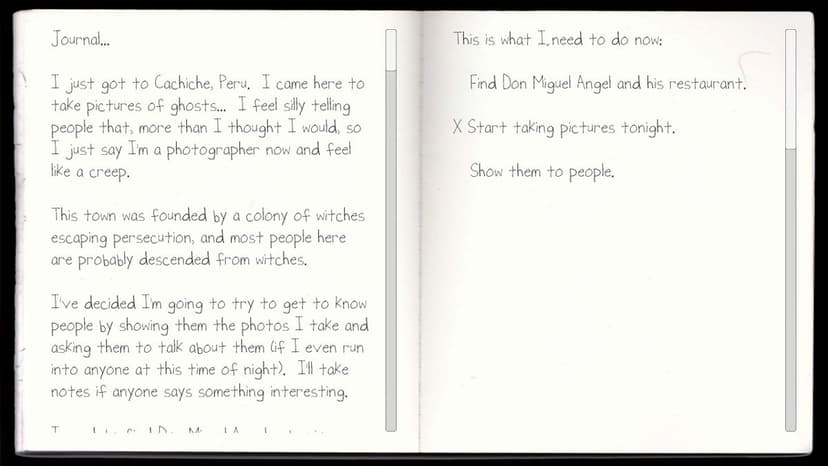 Journal...
I just got to Cachiche, Peru. I came here to
take pictures of ghosts... I feel silly telling
people that, more than I thought I would, so
I just say I'm a photographer now and feel
like a creep.
This town was founded by a colony of witches
escaping persecution, and most people here
are probably descended from witches.
I've decided I'm going to try to get to know
people by showing them the photos I take and
asking them to talk about them (if I even run
into anyone at this time of night). I'll take
notes if anyone says something interesting.
This is what I need to do now:
Find Don Miguel Angel and his restaurant.
X Start taking pictures tonight.
Show them to people.